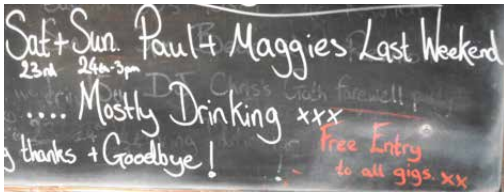 Sat + Sun. Paul + Maggies Last Weekend
23rd 24th - 3pm
DJ Chriss Goth farewell
.... Mostly Drinking xxx
thanks + Goodbye!
Free Entry
to all gigs. xx